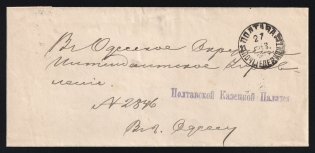 Въ Одесское Окружное
Интендантское Управ-
ленiе.
№ 2846
Въ г. Одессу
Полтавской Казенной Палаты
ПОЛТАВА
27